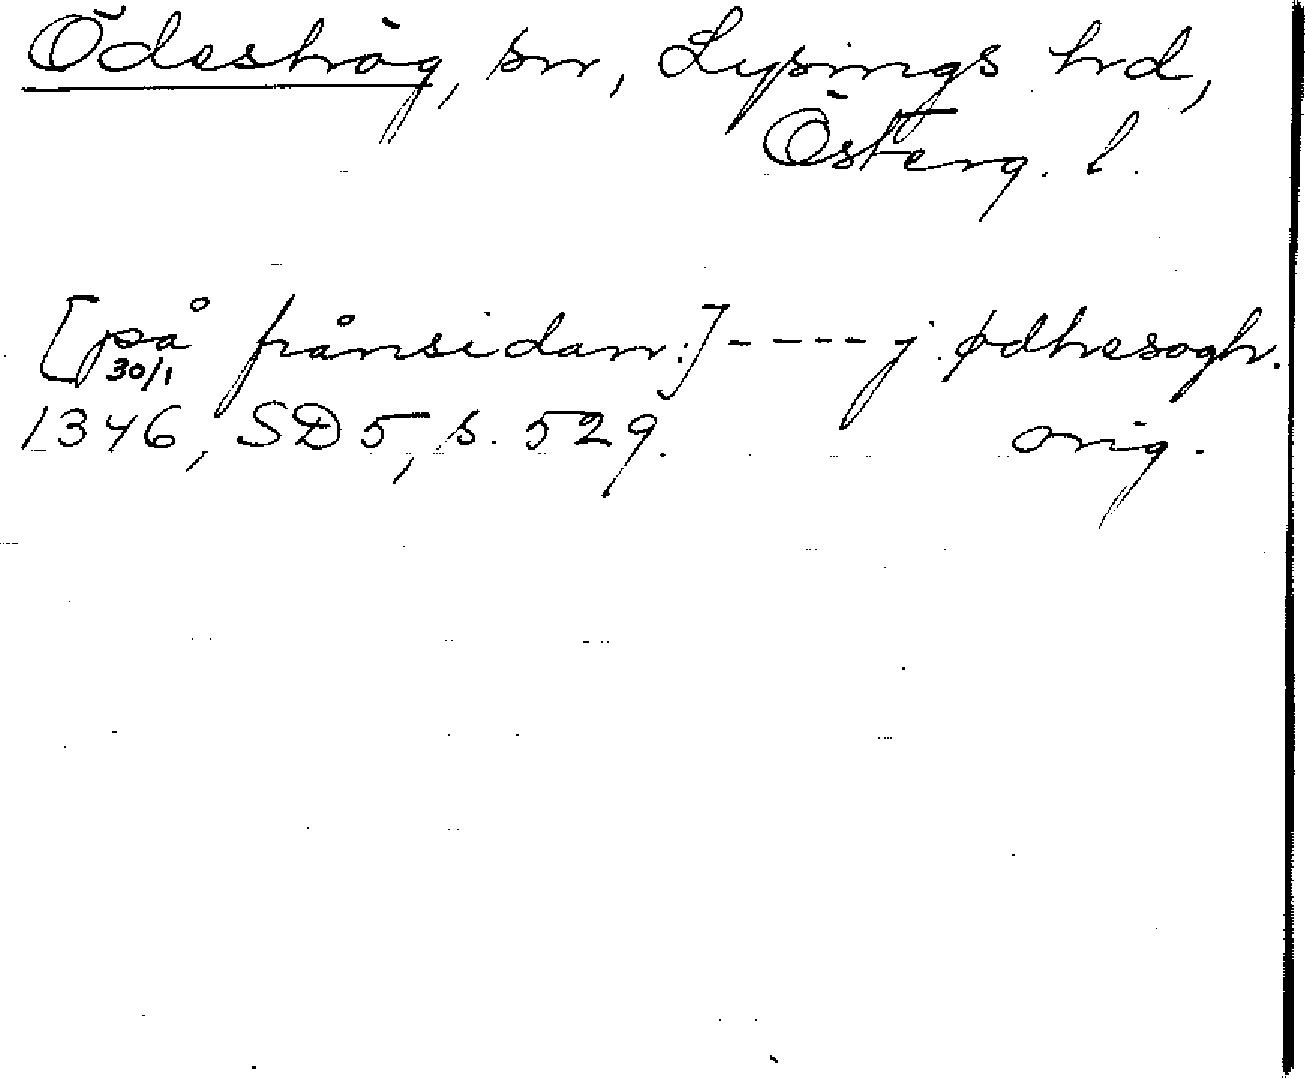 Ödeshög, sn, Lysings hd,
Österg. l.
[på frånsidan:] ----- j. ødhesogh.
30/1
1346, SD 5, s. 529. orig.